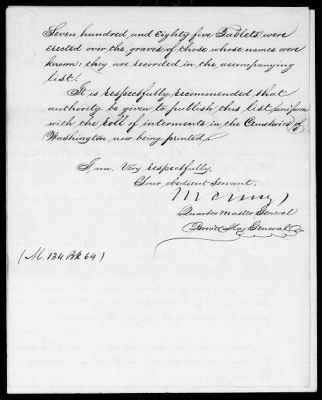 Seven hundred and eighty five Tablets were
erected over the graves of those whose names were
known: they are recorded in the accompanying
list.
It is respectfully recommended that
authority be given to publish this list, uniform
with the roll of interments in the Cemeteries of
Washington, now being printed.
I am, Very Respectfully,
Your, obedient Servant,
Quarter Master General
Brevet Maj General
(M. 134 Bk 64)